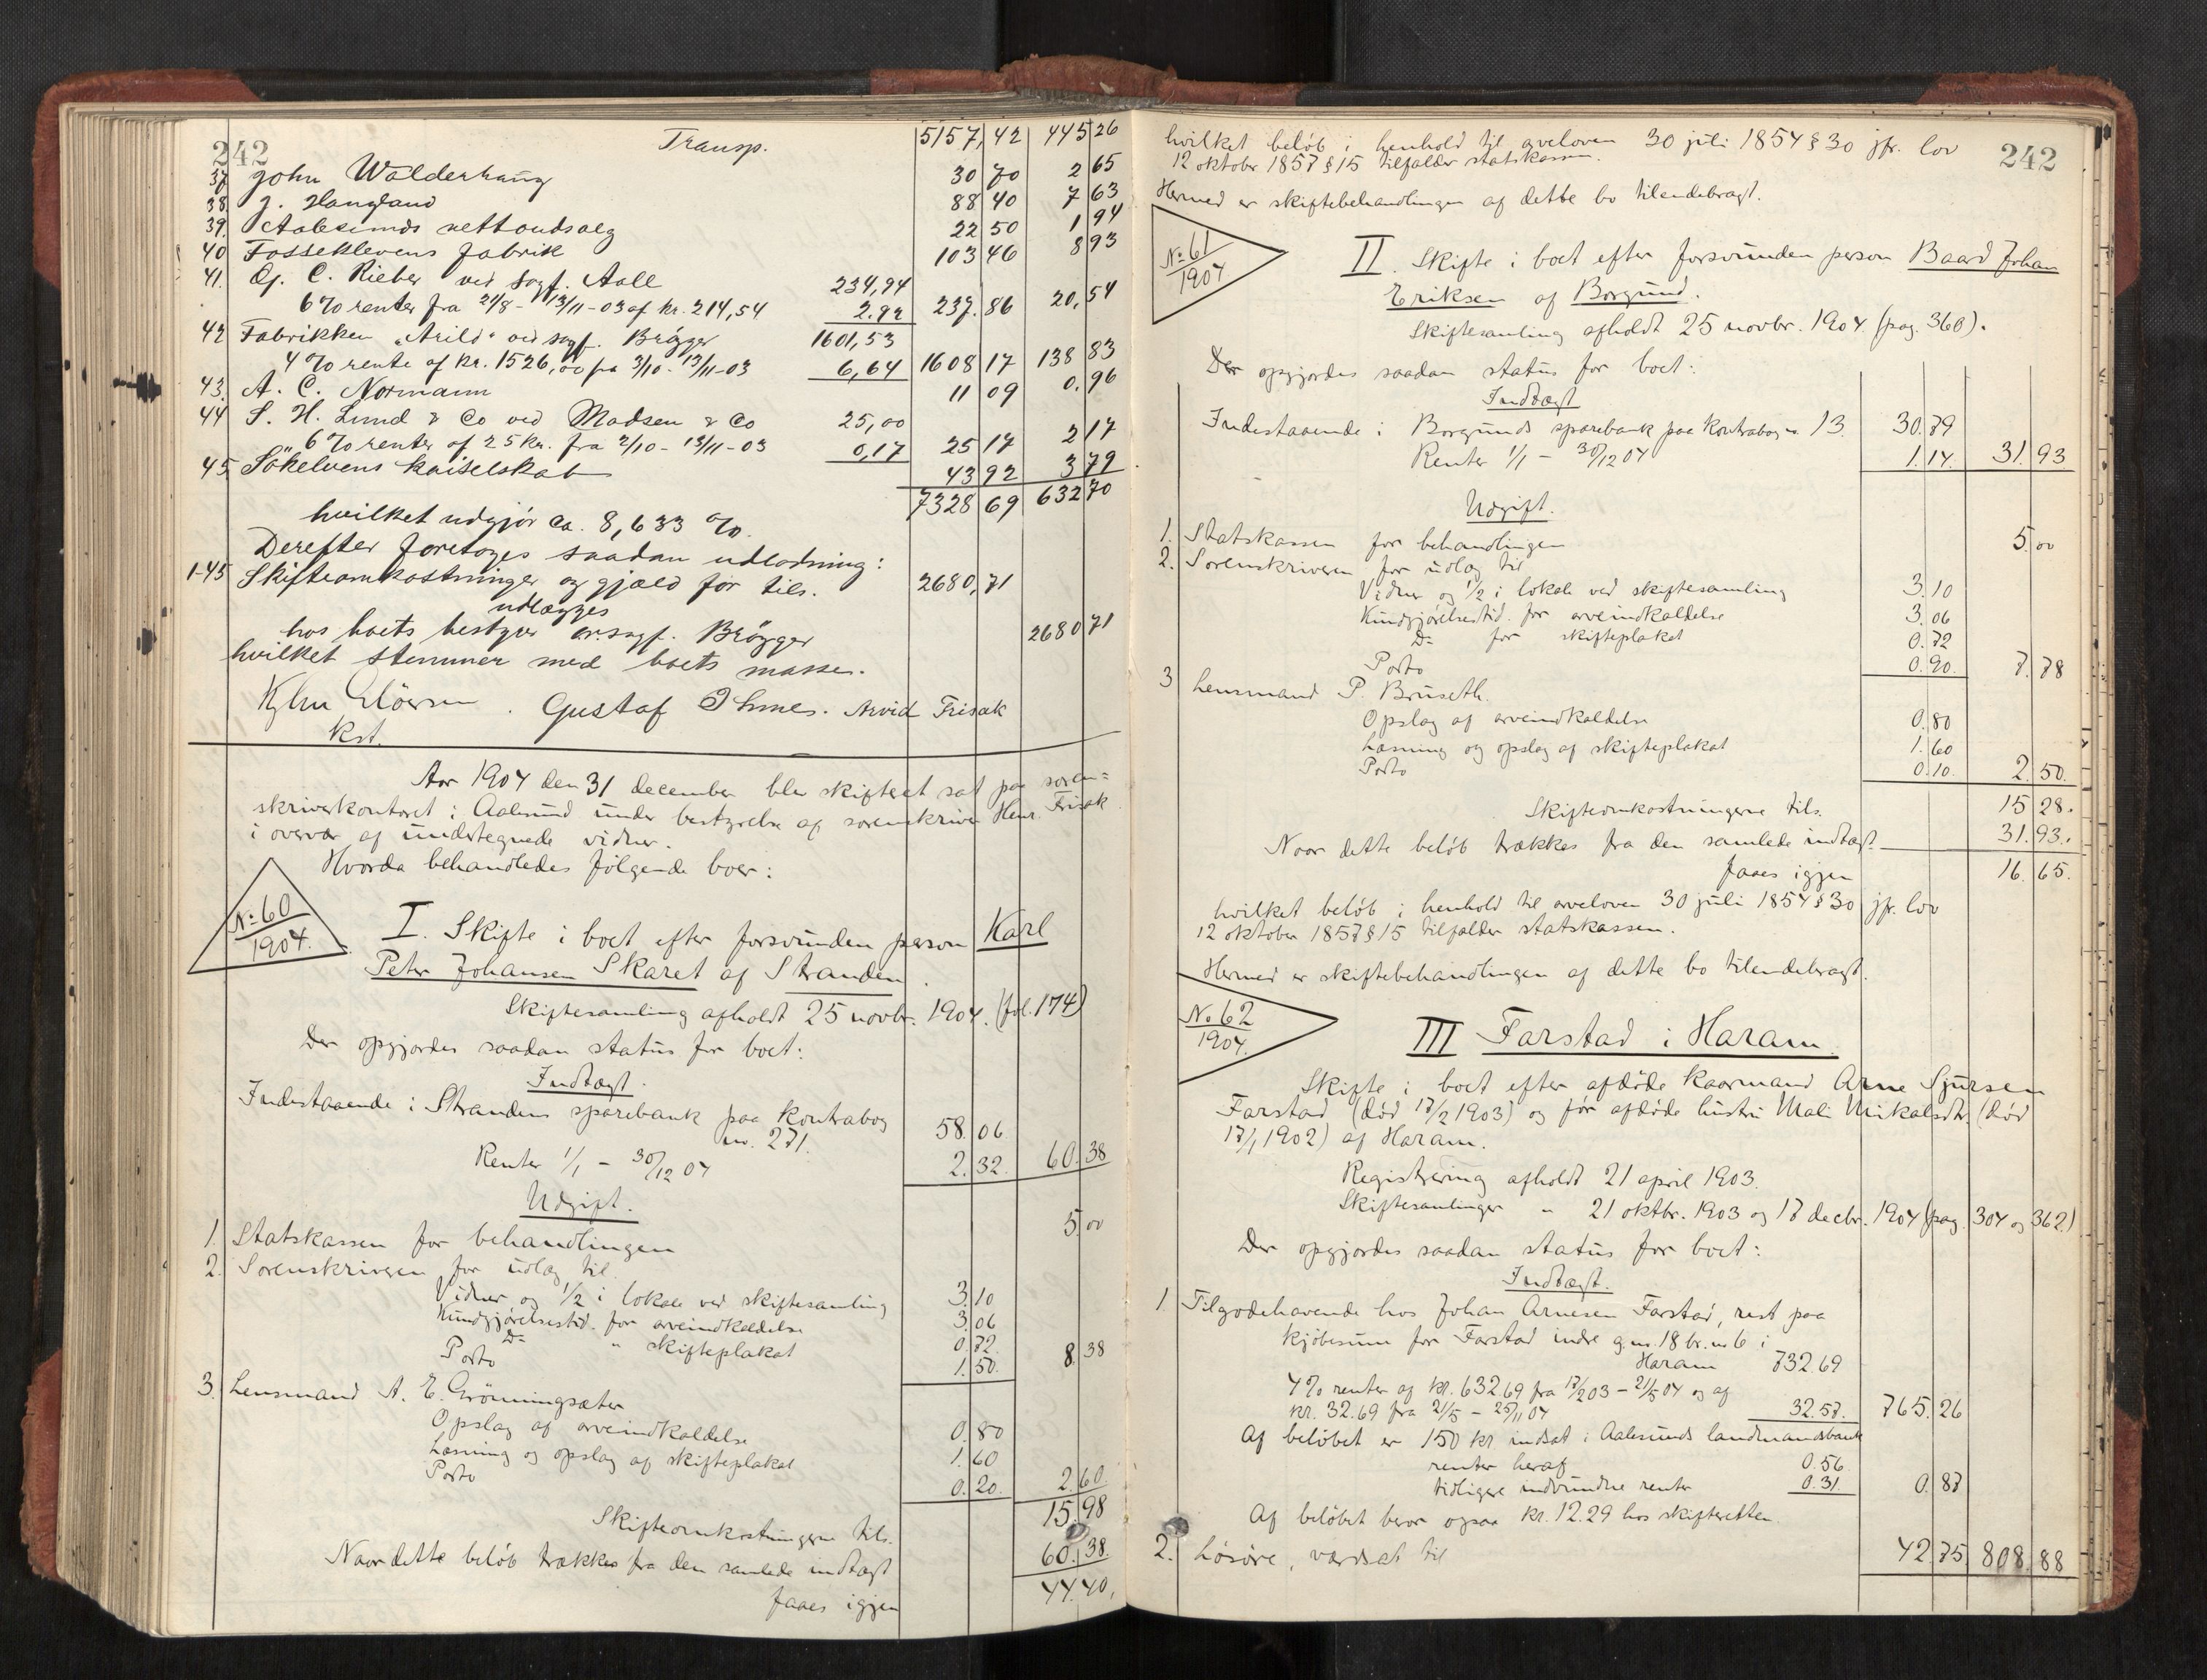 242
Transp. 5157,42 445 26
37 John Walderhaug 30 70 2 65
38 J. Haugland 88 40 7 63
39 Aalesunds nettoudsalg 22 50 1 94
40 Fosseklevens fabrik 103 46 8 93
41. G. C. Rieber ved sagf. Aall 234,94
6% renter fra 27/8 - 13/11-03 af kr. 214,54 2.92 237.86 20,54
42 Fabrikken "Arild" ved sagf. Brøgger 1601,53
4% rente af kr. 1526,00 fra 3/10 - 13/11-03 6,64 1608 17 138 83
43. A. C. Normann 11 09 0.96
44 S. H. Lund & Co ved Madsen & Co 25,00
6% renter af 25 kr. fra 2/10 - 13/11-03 0,17 25 17 2 17
45. Søkelvens kaiselskab 43 92 3 79
7328 69 632 70
hvilket udgjør ca. 8,633 %.
Derefter foretoges saadan udlodning:
1-45 Skifteomkostninger og gjæld før tils. 2680,71
udlægges
hos boets bestyrer or.sagf. Brøgger 2680 71
hvilket stemmer med boets masse.
Gustaf Ihmes. Arvid Frisak
kst.
Aar 1904 den 31 december blev skifteret sat paa soren=
skriverkontoret i Aalesund under bestyrelse af sorenskriver Henr. Frisak
i overvær af undertegnede vidner.
Hvorda behandledes følgende boer:
No 60
1904.
I. Skifte i boet efter forsvunden person Karl
Peter Johansen Skaret af Stranden.
Skiftesamling afholdt 25 novbr. 1904. (fol. 174)
Der opgjordes saadan status for boet:
Indtægt.
Indestaaende i Strandens sparebank paa kontrabog
nr. 271. 58.06
Renter 1/1 - 30/12 04 2.32. 60.38
Udgift.
1. Statskassen for behandlingen 5.00
2. Sorenskriveren for udlæg til
Vidner og 1/2 i lokale ved skiftesamling 3.10
Kundgjørelsestid. for arveindkaldelse 3.06
Do " skifteplakat 0.72
Porto 1.50. 8.38
3. Lensmand A. E. Grønningsæter
Opslag af arveindkaldelse 0.80
Læsning og opslag af skifteplakat 1.60
Porto 0.20. 2.60.
Skifteomkostningerne tils. 15.98
Naar dette beløb trækkes fra den samlede indtægt 60.38.
faaes igjen 44.40,
242
hvilket beløb i henhold til arveloven 30 juli 1854 § 30 jfr. lov
12 oktober 1857 § 15 tilfalder statskassen.
Hermed er skiftebehandlingen af dette bo tilendebragt.
No 61
1904
II. Skifte i boet efter forsvunden person Baard Johan
Eriksen af Borgund.
Skiftesamling afholdt 25 novbr. 1904. (pag. 360).
Der opgjordes saadan status for boet:
Indtægt
Indestaaende i Borgunds sparebank paa kontrabog n. 13. 30.79
Renter 1/1 - 30/12 04 1.14. 31.93
Udgift.
1. Statskassen for behandlingen 5.00
2. Sorenskriveren for udlæg til
Vidner og 1/2 i lokale ved skiftesamling 3.10
Kundgjørelsestid. for arveindkaldelse 3.06
Do for skifteplakat 0.72
Porto 0.90. 7.78
3 Lensmand P. Bruseth.
Opslag af arveindkaldelse 0.80
Læsning og opslag af skifteplakat 1.60
Porto 0.10. 2.50.
Skifteomkostningerne tils. 15 28.
Naar dette beløb trækkes fra den samlede indtægt 31.93.
faaes igjen 16.65.
hvilket beløb i henhold til arveloven 30 juli 1854 § 30 jfr. lov
12 oktober 1857 § 15 tilfalder statskassen.
Hermed er skiftebehandlingen af dette bo tilendebragt.
No 62
1904.
III Farstad i Haram.
Skifte i boet efter afdøde kaarmand Arne Sjursen
Farstad (død 17/2 1903) og før afdøde hustru Mali Mikalsdtr. (død
17/1 1902) af Haram.
Registrering afholdt 21 april 1903.
Skiftesamlinger " 21 oktbr. 1903 og 17 decbr. 1904 (pag. 304 og 362)
Der opgjordes saadan status for boet:
Indtægt.
1. Tilgodehavende hos Johan Arnesen Farstad, rest paa
kjøbesum for Farstad indre g.nr. 18 br.nr 6 i
Haram 732.69
4% renter af kr. 632.69 fra 17/2 03 - 21/5 04 og af
kr. 32.69 fra 21/5 - 25/11 04 32.57. 765.26
Af beløbet er 150 kr indsat i Aalesunds landmandsbank
renter heraf 0.56.
tidligere indvundne renter 0.31 0.87
Af beløbet beror ogsaa kr. 12.29 hos skifteretten.
2. Løsøre, værdsat til 42.75 808.88